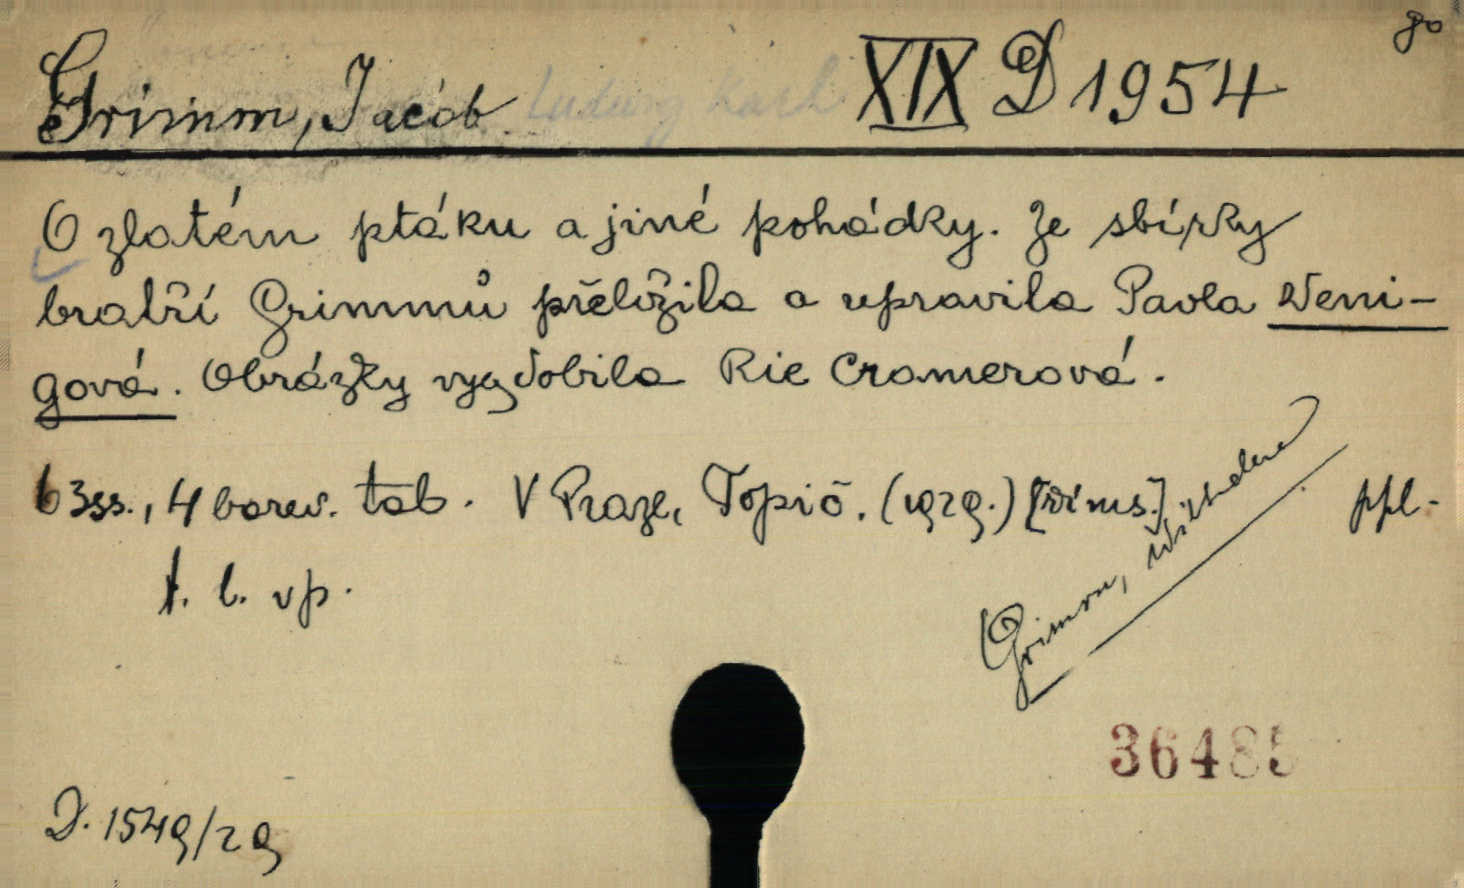 go
Grimm, Jacob Ludwig Karl XIX D 1954
O zlatém ptáku a jiné pohádky. Ze sbírky
bratří Grimmů přeložila a upravila Pavla Weni-
gová. Obrázky vyzdobila Rie Cramerová.
63 ss., 4 barev. tab. V Praze, Topič. (1929.) ppl.
Grimm, Wilhelm
36485
D. 1549/29